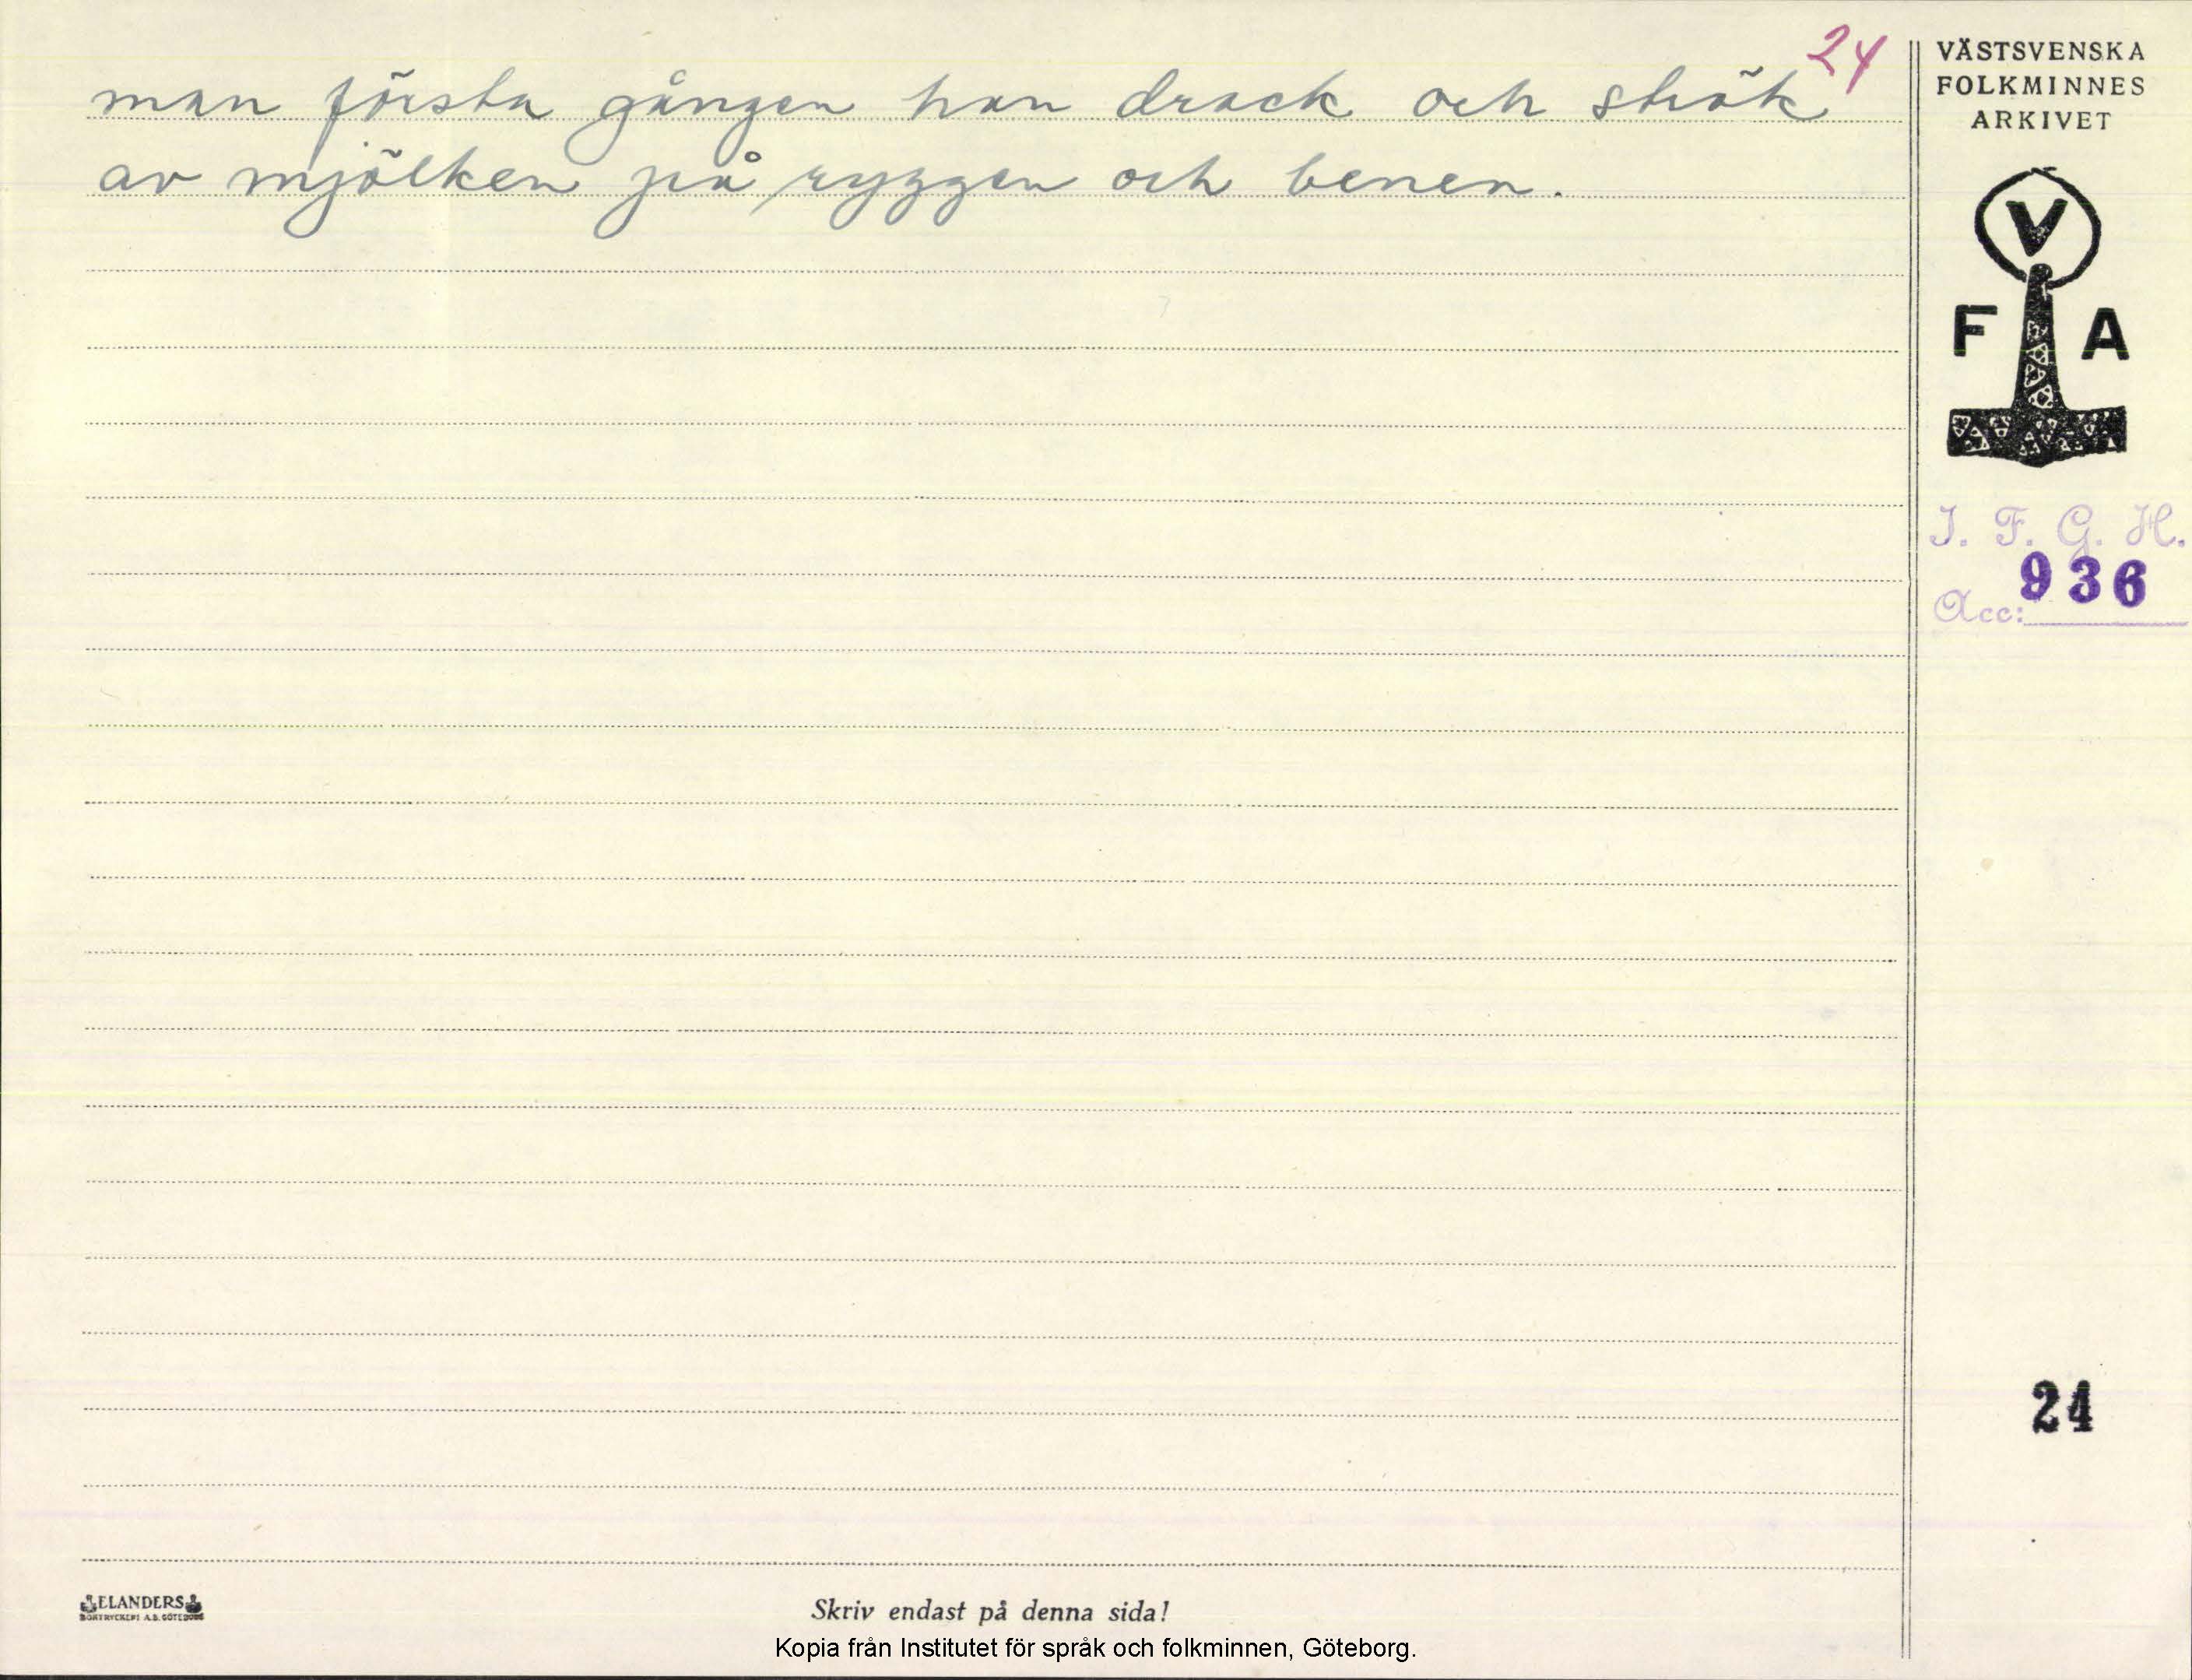 24
man första gången han drack och strök
av mjölken på ryggen och benen.
VÄSTSVENSKA
FOLKMINNES
ARKIVET
V
F A
I. F. G. H.
Acc: 936
24
ELANDERS
BOKTRYCKERI A.B. GÖTEBORG
Skriv endast på denna sida!
Kopia från Institutet för språk och folkminnen, Göteborg.